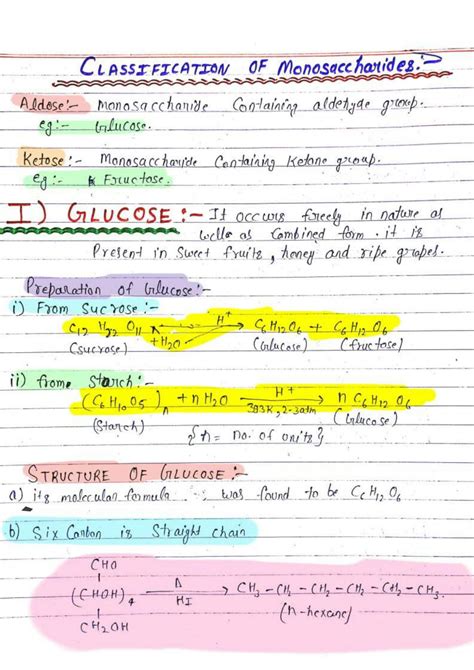 CLASSIFICATION OF Monosaccharides:-
Aldose:- Monosaccharide Containing aldehyde group.
eg:- Glucose.
Ketose:- Monosaccharide Containing Ketone group.
eg:- Fructose.
I) GLUCOSE:- It occurs freely in nature as
well as Combined form. it is
Present in sweet fruits, honey and ripe grapes.
Preparation of Glucose:-
i) From Sucrose:-
C12 H22 O11 +H2O H+ → C6H12O6 + C6H12O6
(sucrose) (Glucose) (fructose)
ii) frome Starch:-
(C6H10O5)n + nH2O H+ 393K, 2-3atm → n C6H12O6
(Starch) (Glucose)
{n = no. of units}
STRUCTURE OF GLUCOSE:-
a) its molecular formula was found to be C6H12O6
b) Six Carbon is Straight chain
CHO
(CHOH)4 Δ HI → CH3-CH2-CH2-CH2-CH2-CH3
CH2OH (n-hexane)